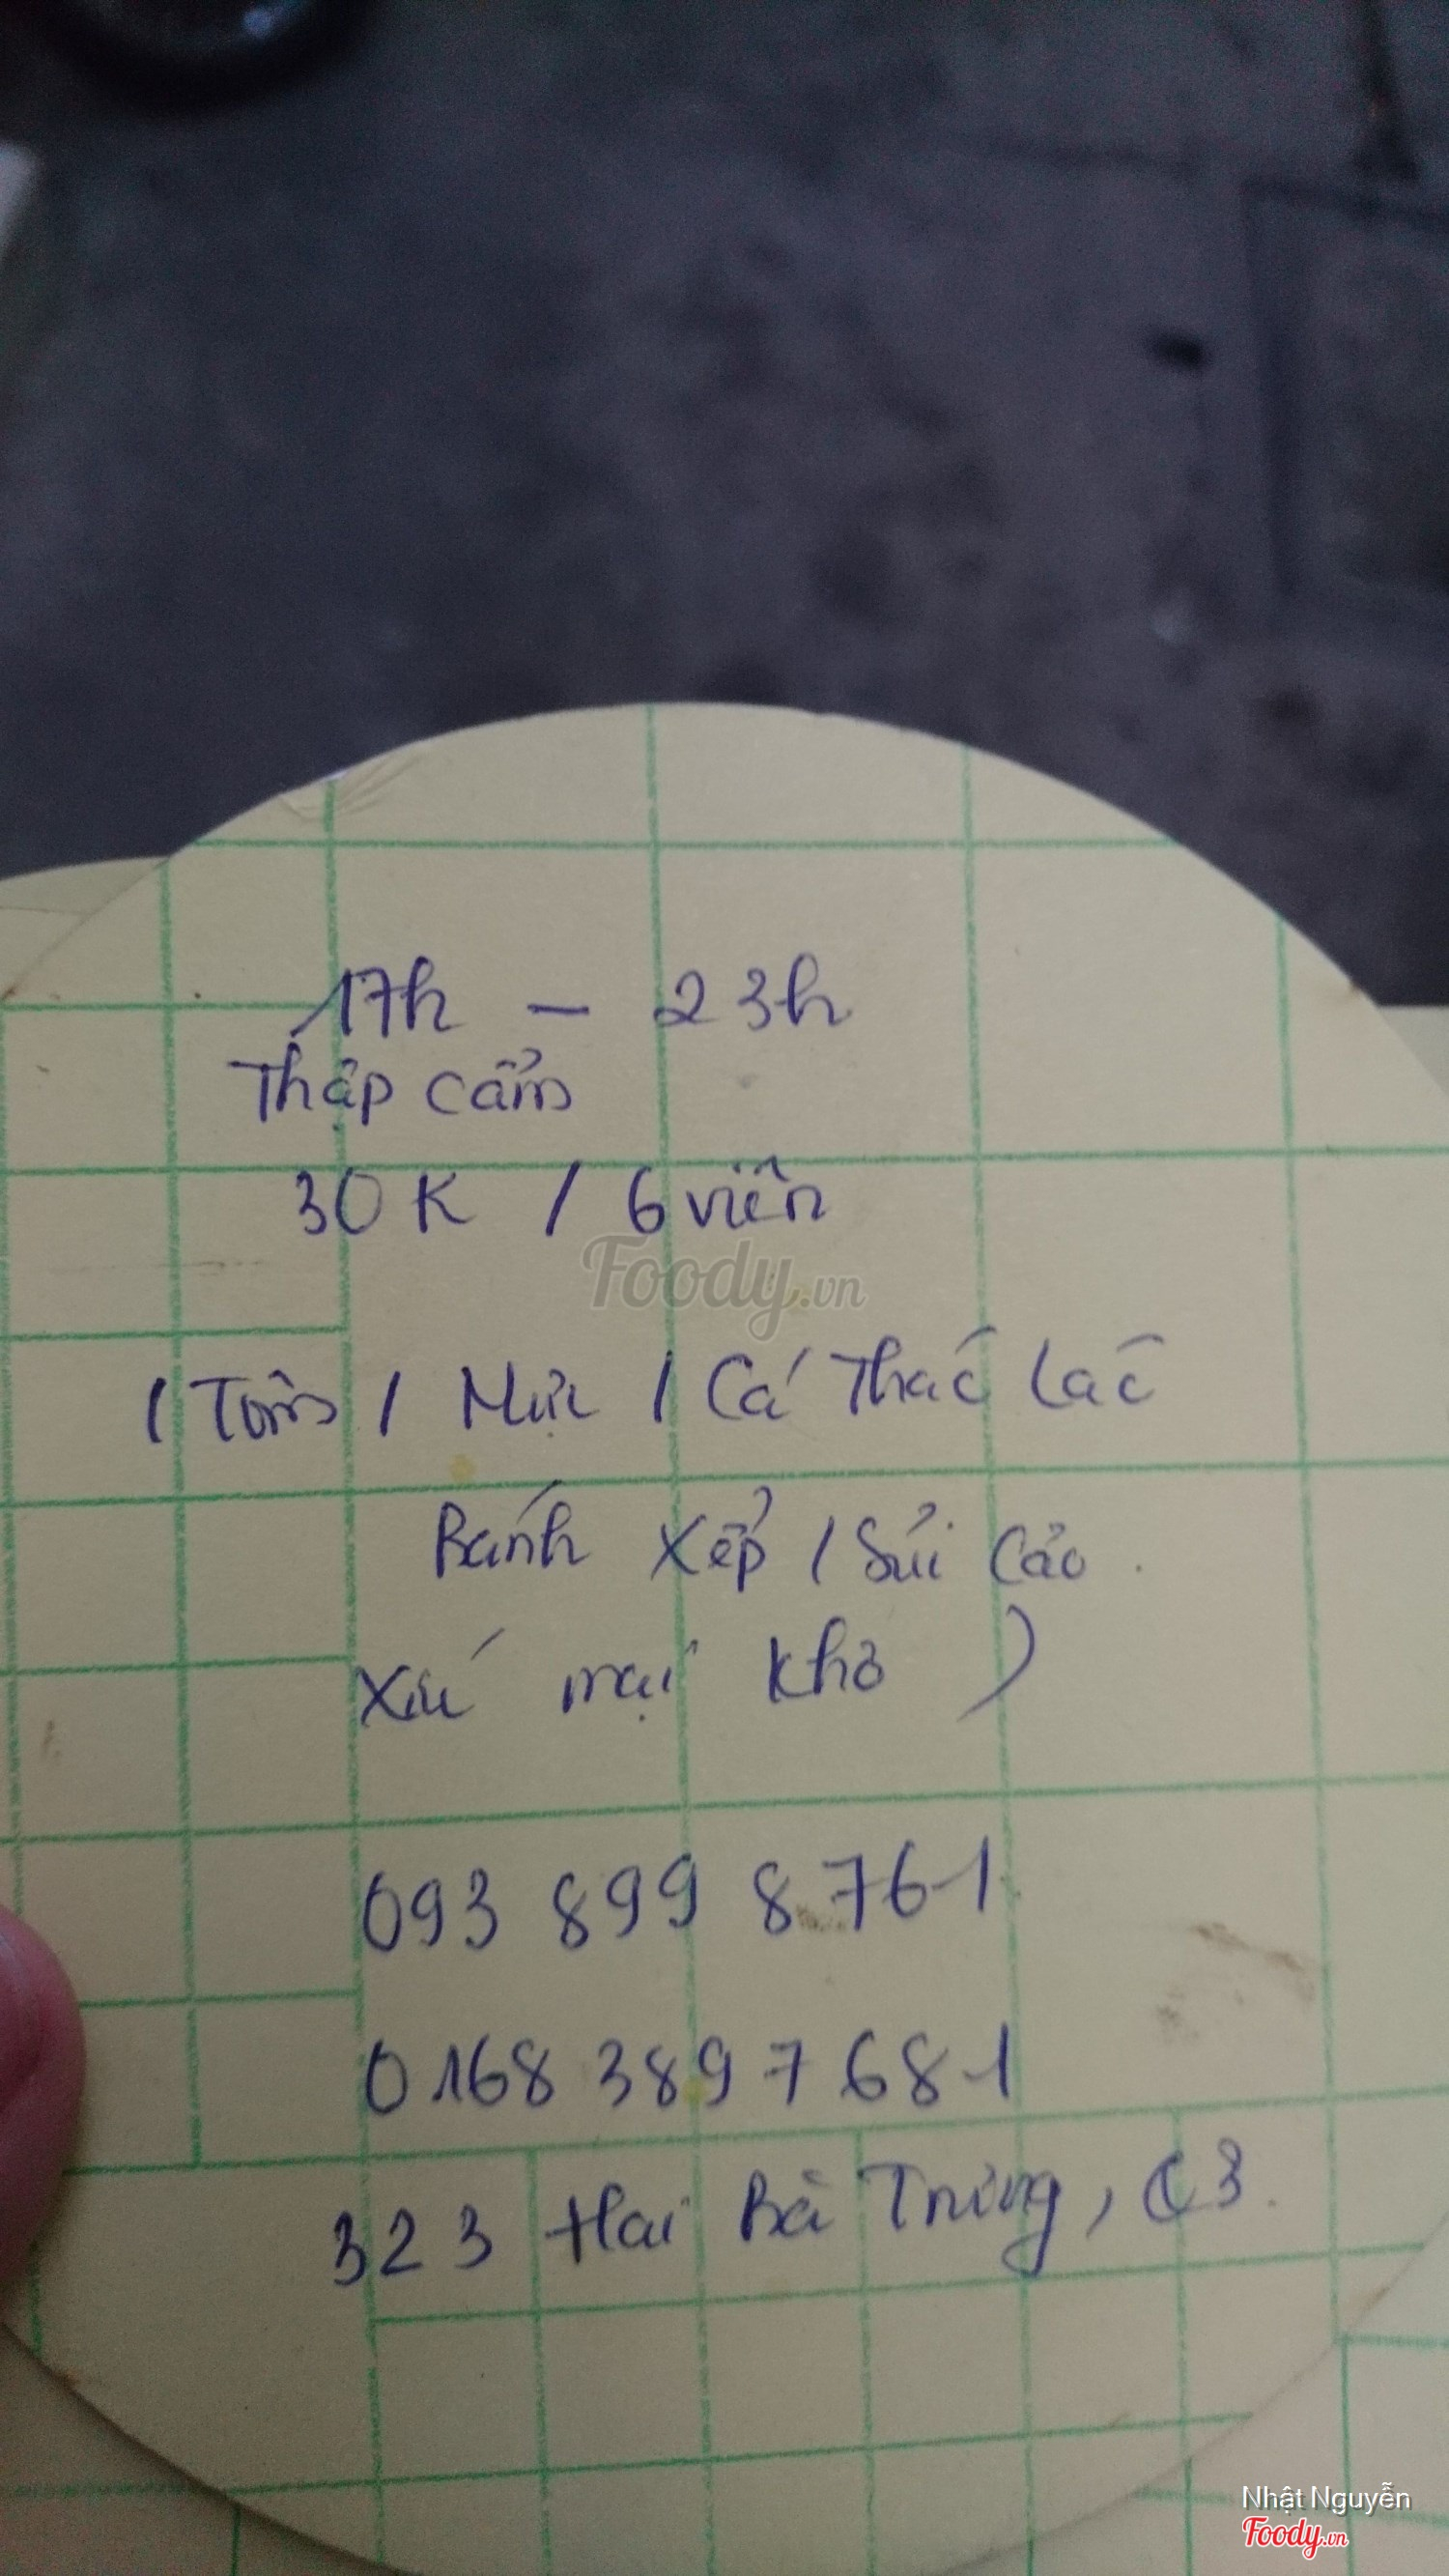 17h - 23h
Thập cẩm
30K / 6 viên
Foody.vn
( Tôm / Mực / Cá Thác Lác
Bánh xếp / Sủi Cảo.
Xíu mại khô )
093 899 8761
0168 3897 681
323 Hai Bà Trưng, Q3.
Nhật Nguyễn
Foody.vn